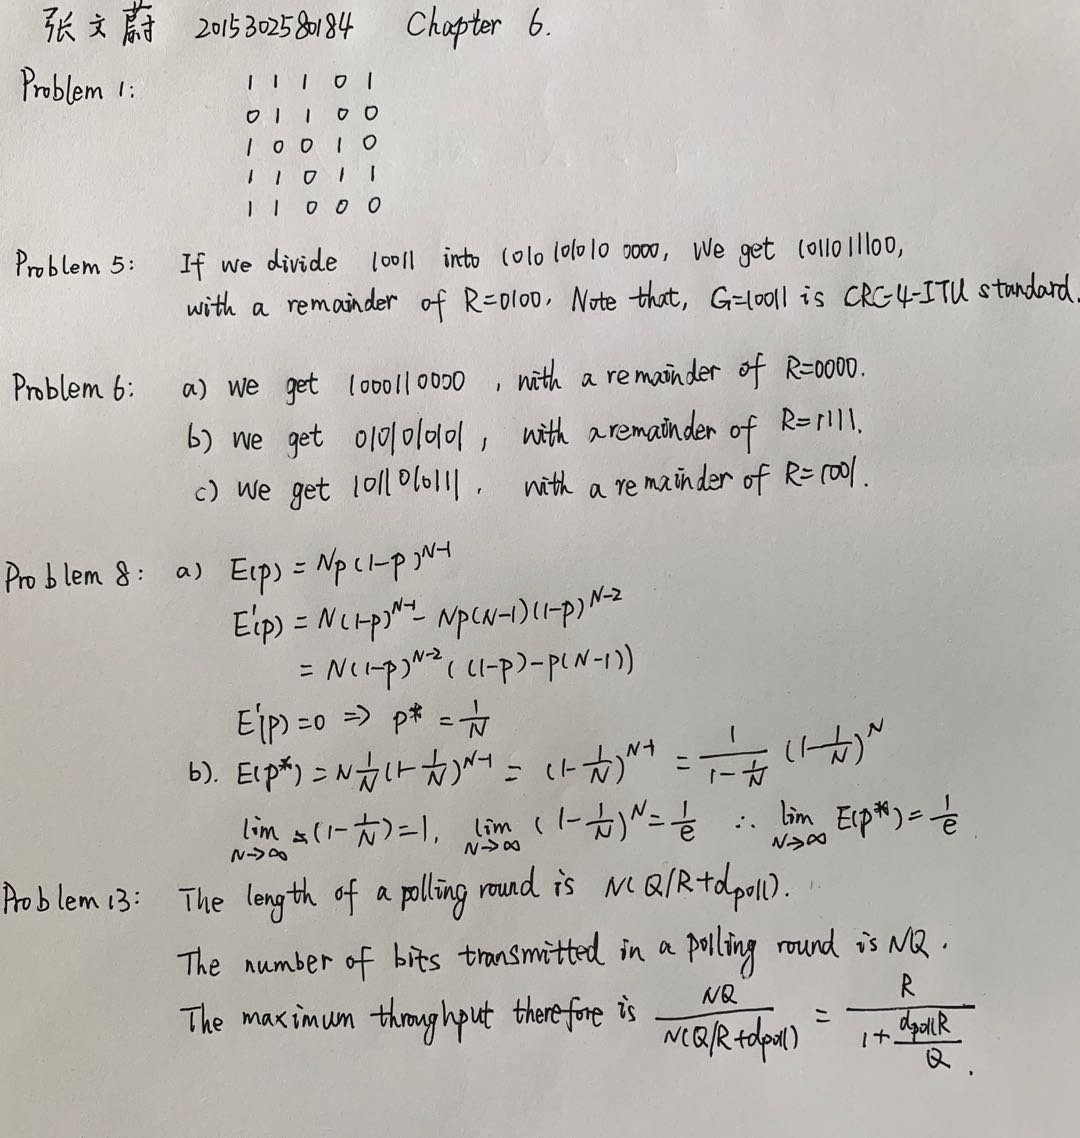 张文蔚 2015302580184 Chapter 6.
Problem 1: 1 1 1 0 1
0 1 1 0 0
1 0 0 1 0
1 1 0 1 1
1 1 0 0 0
Problem 5: If we divide 10011 into 1010101010 0000, We get 1011011100,
with a remainder of R=0100, Note that, G=10011 is CRC-4-ITU standard.
Problem 6: a) we get 1000110000, with a remainder of R=0000.
b) we get 0101010101, with a remainder of R=1111.
c) we get 1011010111, with a remainder of R=1001.
Problem 8: a) E(p) = Np(1-p)^{N-1}
E'(p) = N(1-p)^{N-1} - Np(N-1)(1-p)^{N-2}
= N(1-p)^{N-2}((1-p)-p(N-1))
E'(p)=0 => p* = 1/N
b). E(p*) = N 1/N (1-1/N)^{N-1} = (1-1/N)^{N-1} = 1/(1-1/N) (1-1/N)^N
lim_{N→∞} (1-1/N)=1, lim_{N→∞} (1-1/N)^N = 1/e ∴ lim_{N→∞} E(p*) = 1/e
Problem 13: The length of a polling round is N(Q/R+d_{poll}).
The number of bits transmitted in a polling round is NQ.
The maximum throughput therefore is NQ/(N(Q/R+d_{poll})) = R/(1+d_{poll}R/Q).